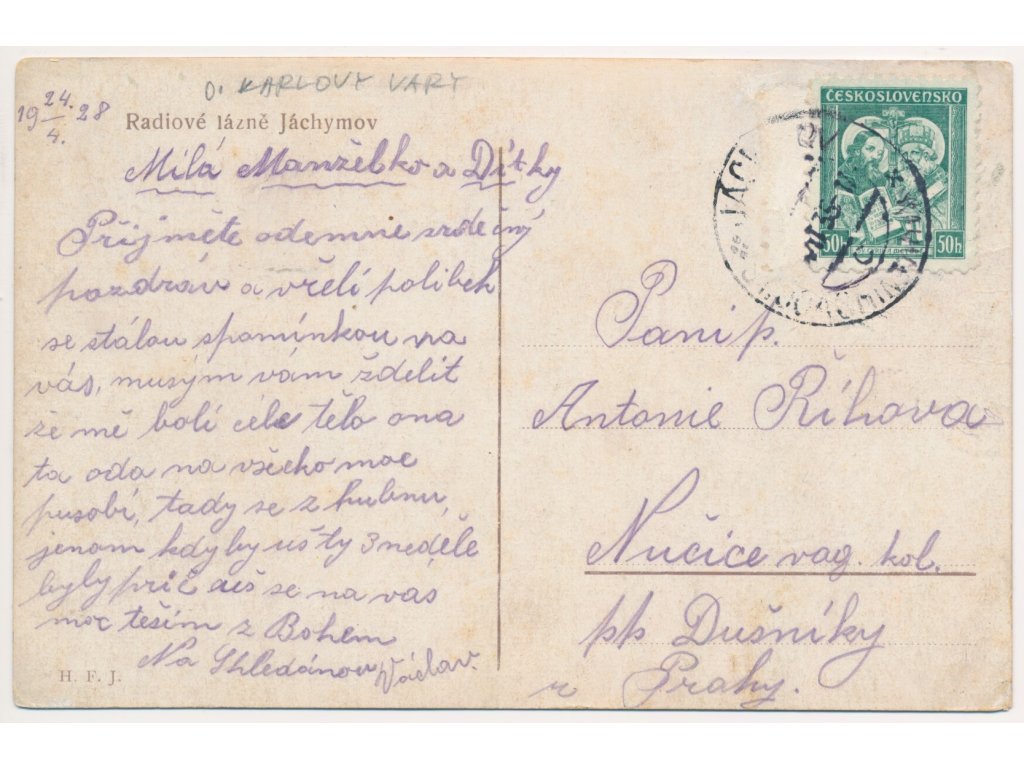 O. KARLOVY VARY
19 24./4. 28
Radiové lázně Jáchymov
Milá Manželko a Dítky
Přijměte odemne srdečný
pozdrav a vřelí polibek
se stálou spomínkou na
vás, musým vám zdelit
že mě bolí céle tělo ona
ta oda na všecko moc
pusobí, tady se z hubnu,
jenom kdyby uš ty 3 neděle
byly prič uš se na vás
moc těším z Bohem
Na Shledánou Václav.
H. F. J.
ČESKOSLOVENSKO
50h 50h
JÁCHYMOV
Paní p.
Antonie Říhova
Nučice vag. kol.
pp Dušníky
u Prahy.